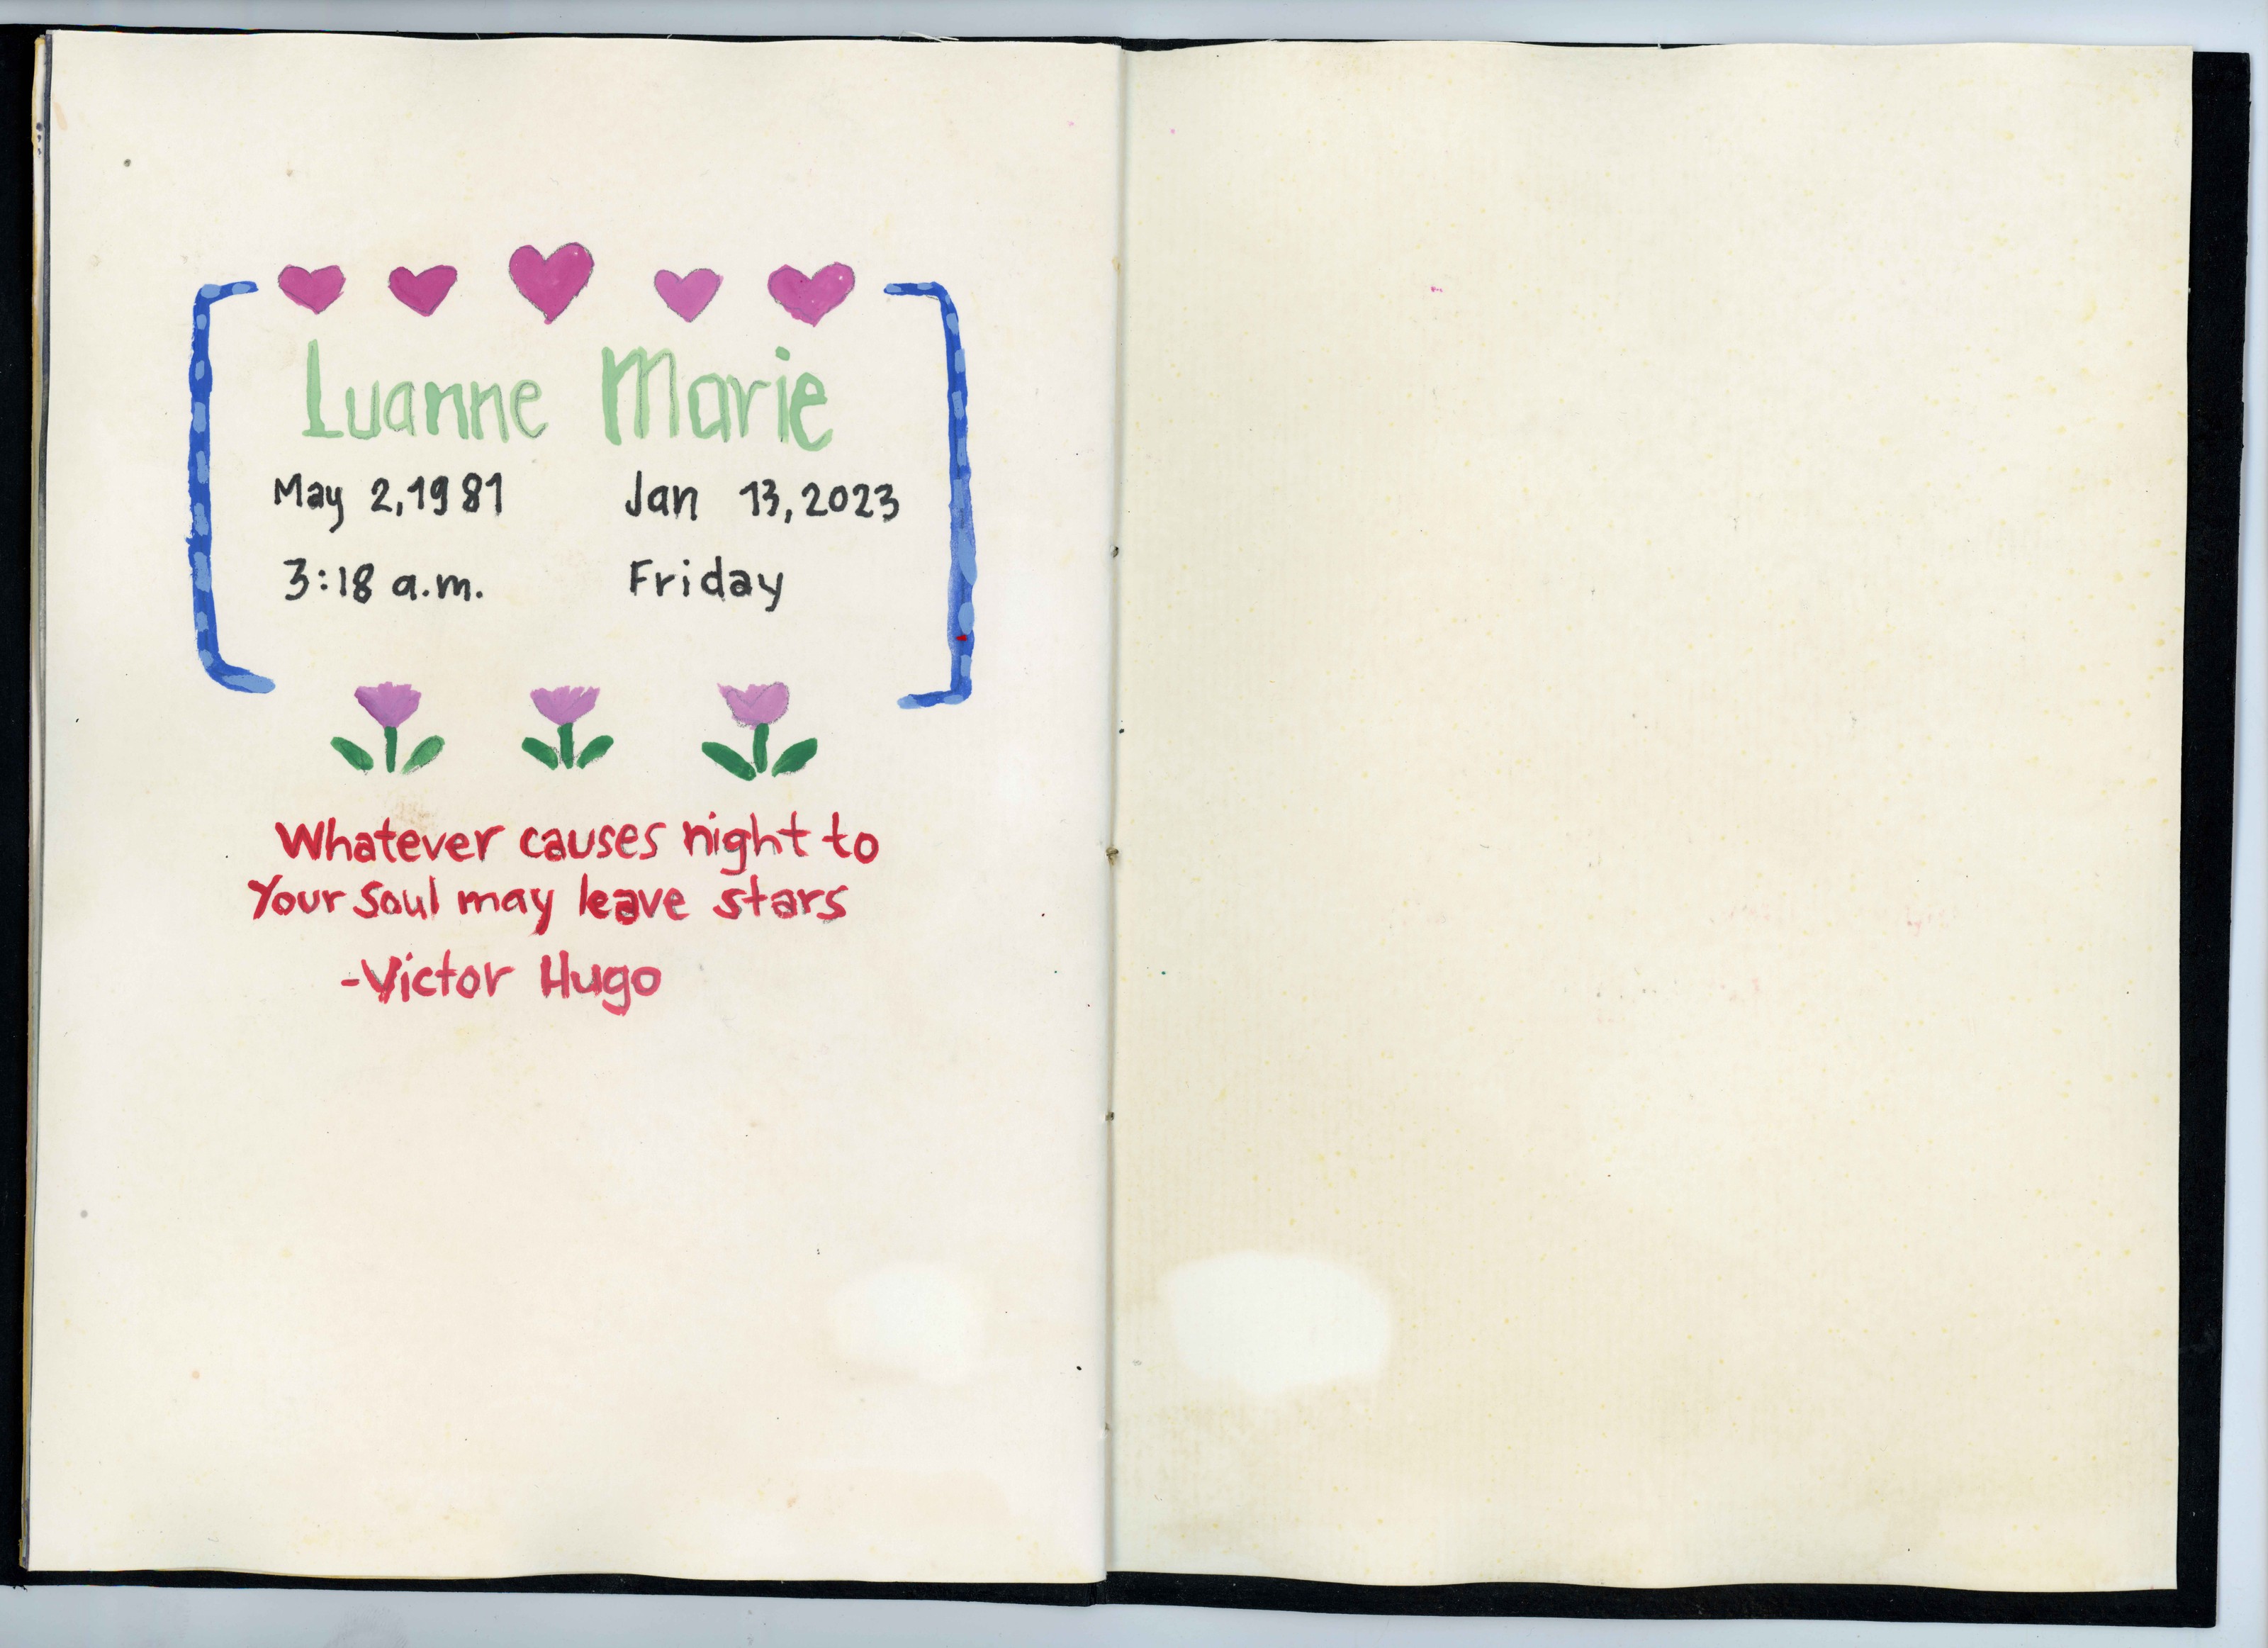 Luanne Marie
May 2,1981 Jan 13,2023
3:18 a.m. Friday
Whatever causes night to
Your Soul may leave stars
-Victor Hugo